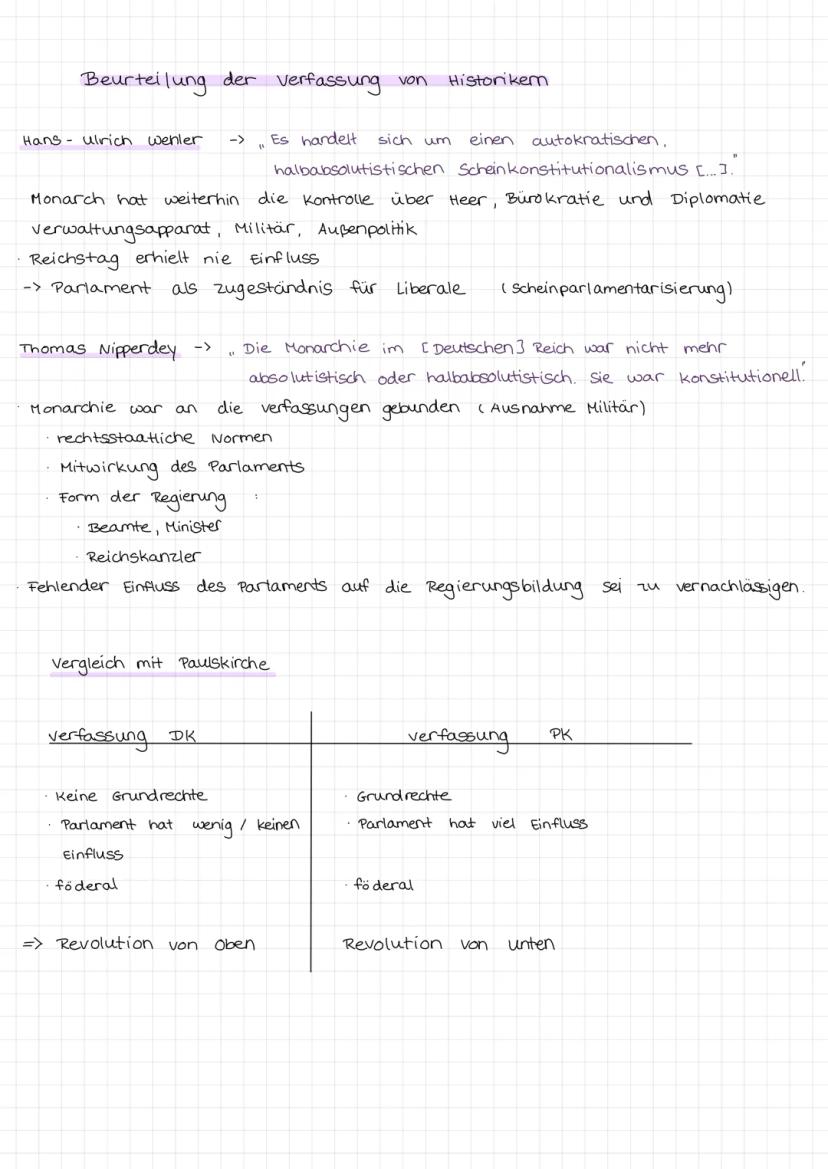 Beurteilung der Verfassung von Historikern
Hans-Ulrich Wehler -> „Es handelt sich um einen autokratischen,
halbabsolutistischen Scheinkonstitutionalismus [...]."
Monarch hat weiterhin die Kontrolle über Heer, Bürokratie und Diplomatie
Verwaltungsapparat, Militär, Außenpolitik
· Reichstag erhielt nie Einfluss
-> Parlament als Zugeständnis für Liberale (Scheinparlamentarisierung)
Thomas Nipperdey -> „Die Monarchie im [Deutschen] Reich war nicht mehr
absolutistisch oder halbabsolutistisch. Sie war konstitutionell."
· Monarchie war an die Verfassungen gebunden (Ausnahme Militär)
· rechtsstaatliche Normen
· Mitwirkung des Parlaments
· Form der Regierung :
· Beamte, Minister
· Reichskanzler
· Fehlender Einfluss des Parlaments auf die Regierungsbildung sei zu vernachlässigen.
Vergleich mit Paulskirche
Verfassung DK
Verfassung PK
· Keine Grundrechte
· Parlament hat wenig / keinen
Einfluss
· föderal
=> Revolution von Oben
· Grundrechte
· Parlament hat viel Einfluss
· föderal
Revolution von unten